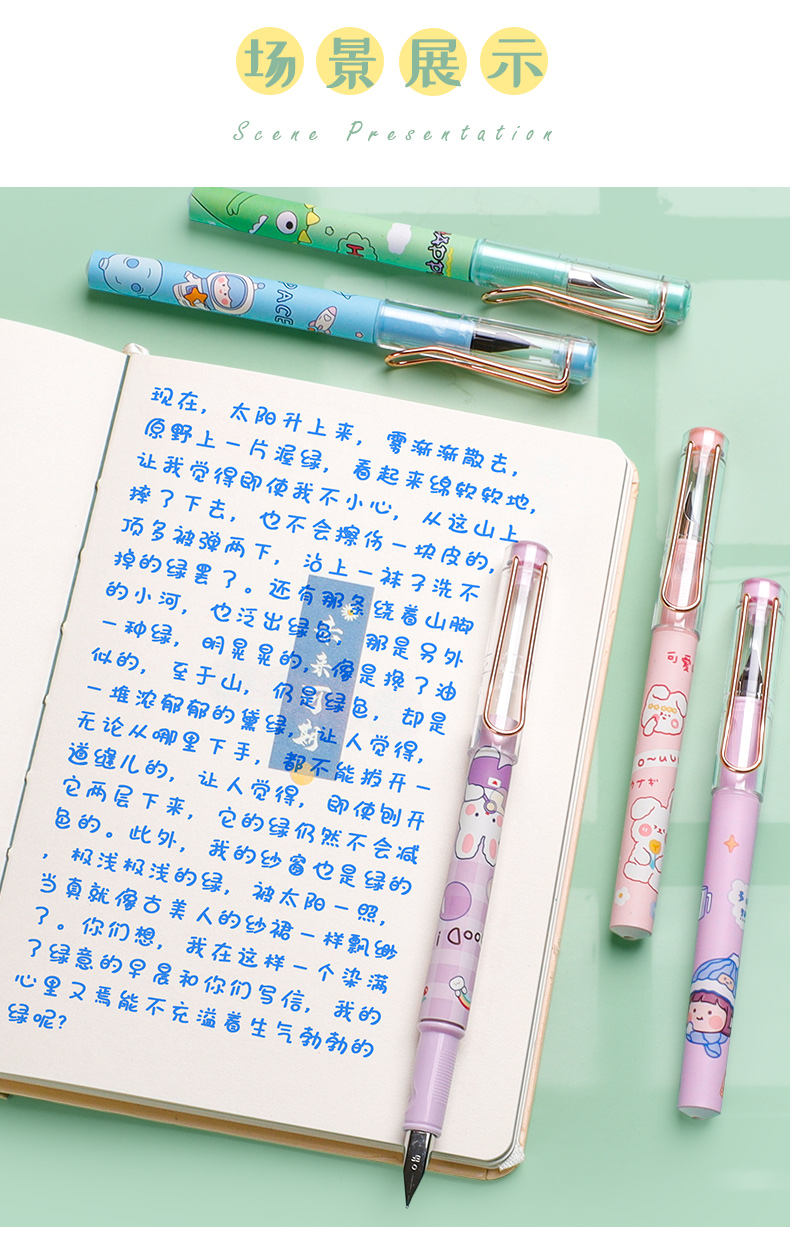 场景展示
Scene Presentation
HAPPY
SPACE
现在，太阳升上来，雾渐渐散去，
原野上一片渥绿，看起来绵软软地，
让我觉得即使我不小心，从这山上
摔了下去，也不会擦伤一块皮的，
顶多被弹两下，沾上一袜子洗不
掉的绿罢了。还有那条绕着山脚
的小河，也泛出绿色，那是另外
一种绿，明晃晃的，像是搀了油
似的，至于山，仍是绿色，却是
一堆浓郁郁的黛绿，让人觉得，
无论从哪里下手，都不能拨开一
道缝儿的，让人觉得，即使刨开
它两层下来，它的绿仍然不会减
色的。此外，我的纱窗也是绿的
，极浅极浅的绿，被太阳一照，
当真就像古美人的纱裙一样飘缈
了。你们想，我在这样一个染满
了绿意的早晨和你们写信，我的
心里又焉能不充溢着生气勃勃的
绿呢？
未来可期
可爱